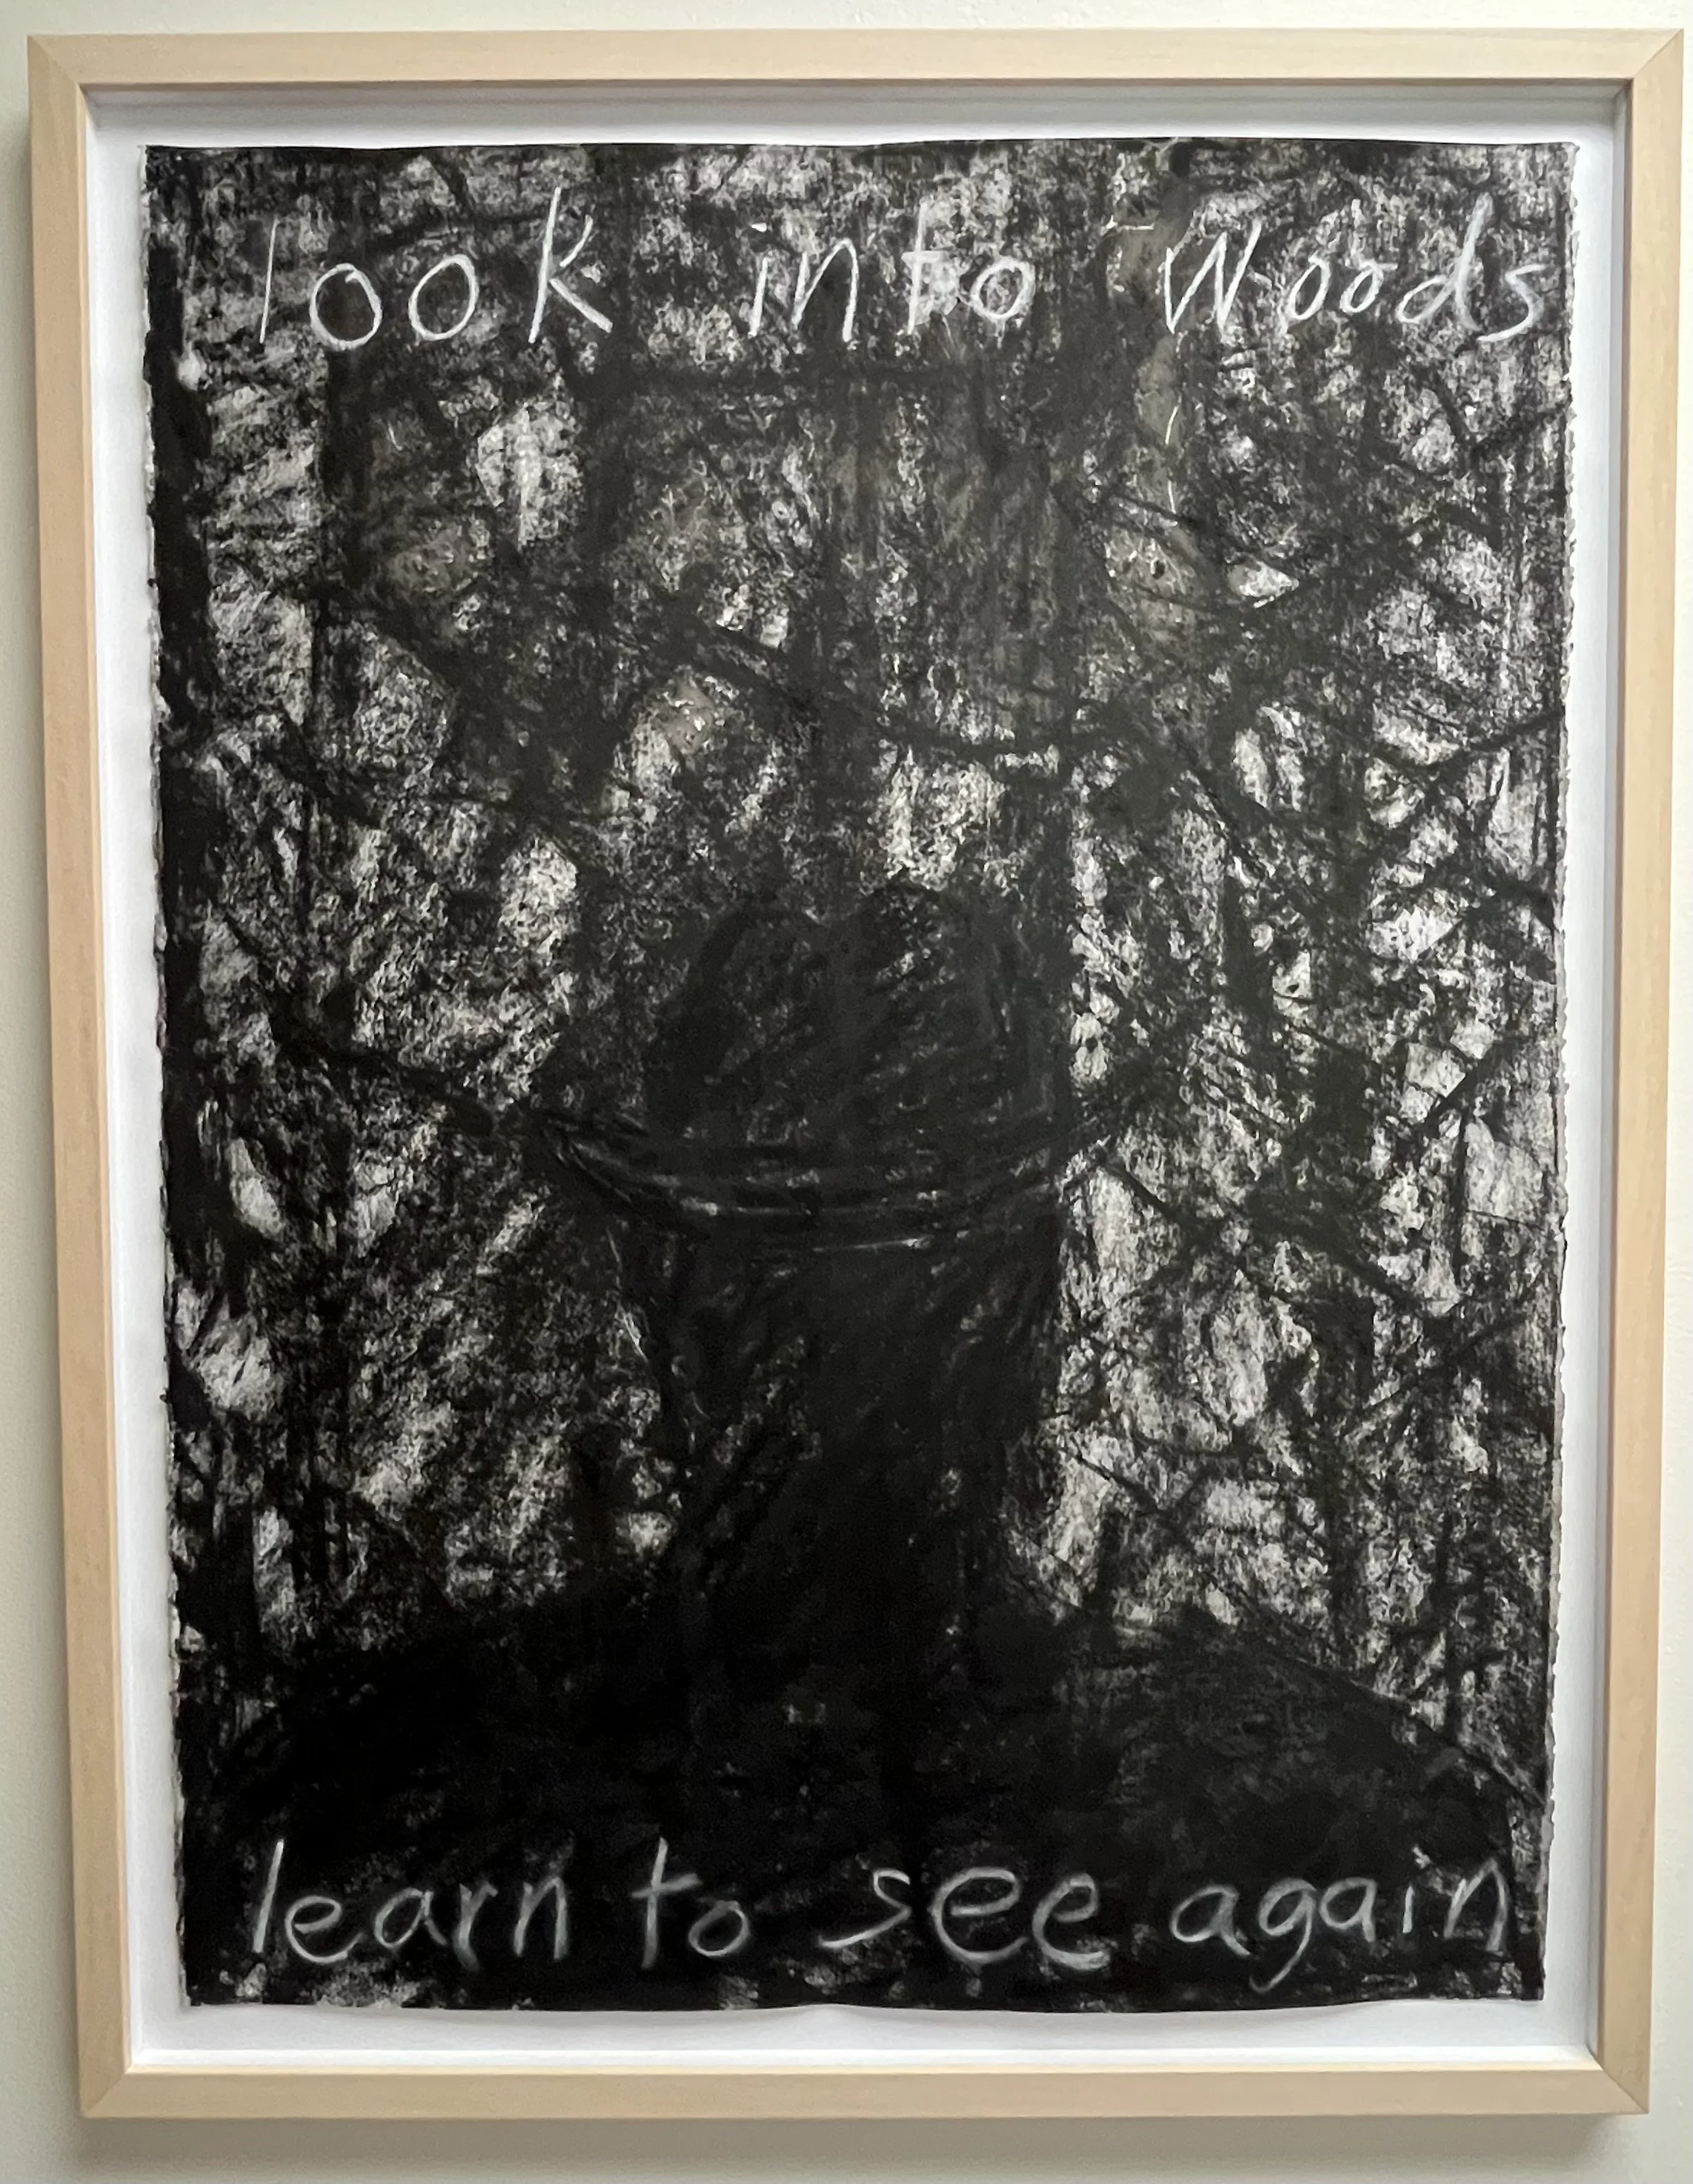 look into Woods
learn to see again